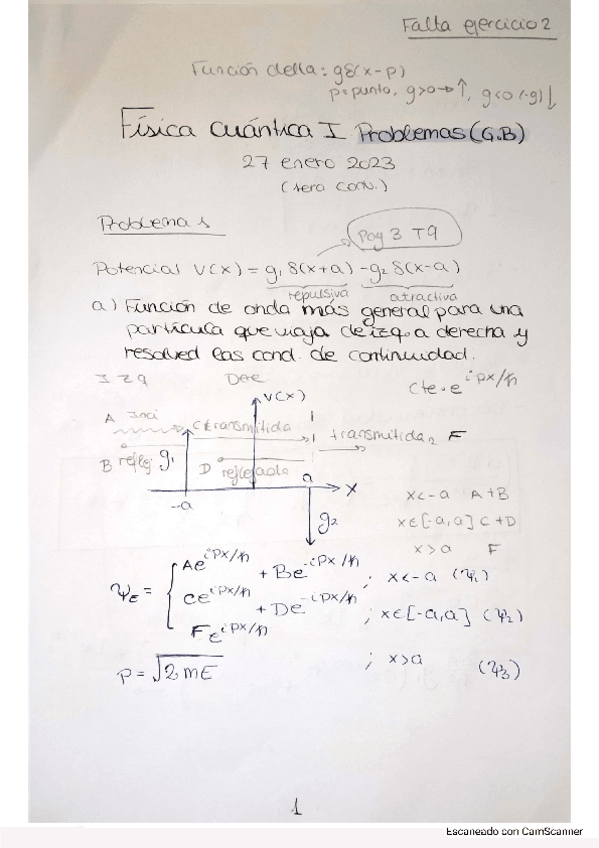 Falta ejercicio 2
Función della: gδ(x-p)
p=punto, g>0→↑, g<0 (-g)↓
Física cuántica I Problemas (G.B)
27 enero 2023
(1era conv.)
Problema 1
Pag 3 T9
Potencial V(x) = g₁ δ(x+a) - g₂ δ(x-a)
repulsiva atractiva
a) Función de onda más general para una
partícula que viaja de izq. a derecha y
resolved las cond. de continuidad.
IZQ Dere
Cte·e^{ipx/ħ}
V(x)
A Inci C transmitida
transmitida₂ F
B reflej g₁ D reflejada
a x
-a
g₂
x<-a A+B
x∈[-a,a] C+D
x>a F
Ψ_E = { Ae^{ipx/ħ} + Be^{-ipx/ħ} ; x<-a (Ψ₁)
Ce^{ipx/ħ} + De^{-ipx/ħ} ; x∈[-a,a] (Ψ₂)
Fe^{ipx/ħ} ; x>a (Ψ₃)
p = √2mE
1
Escaneado con CamScanner